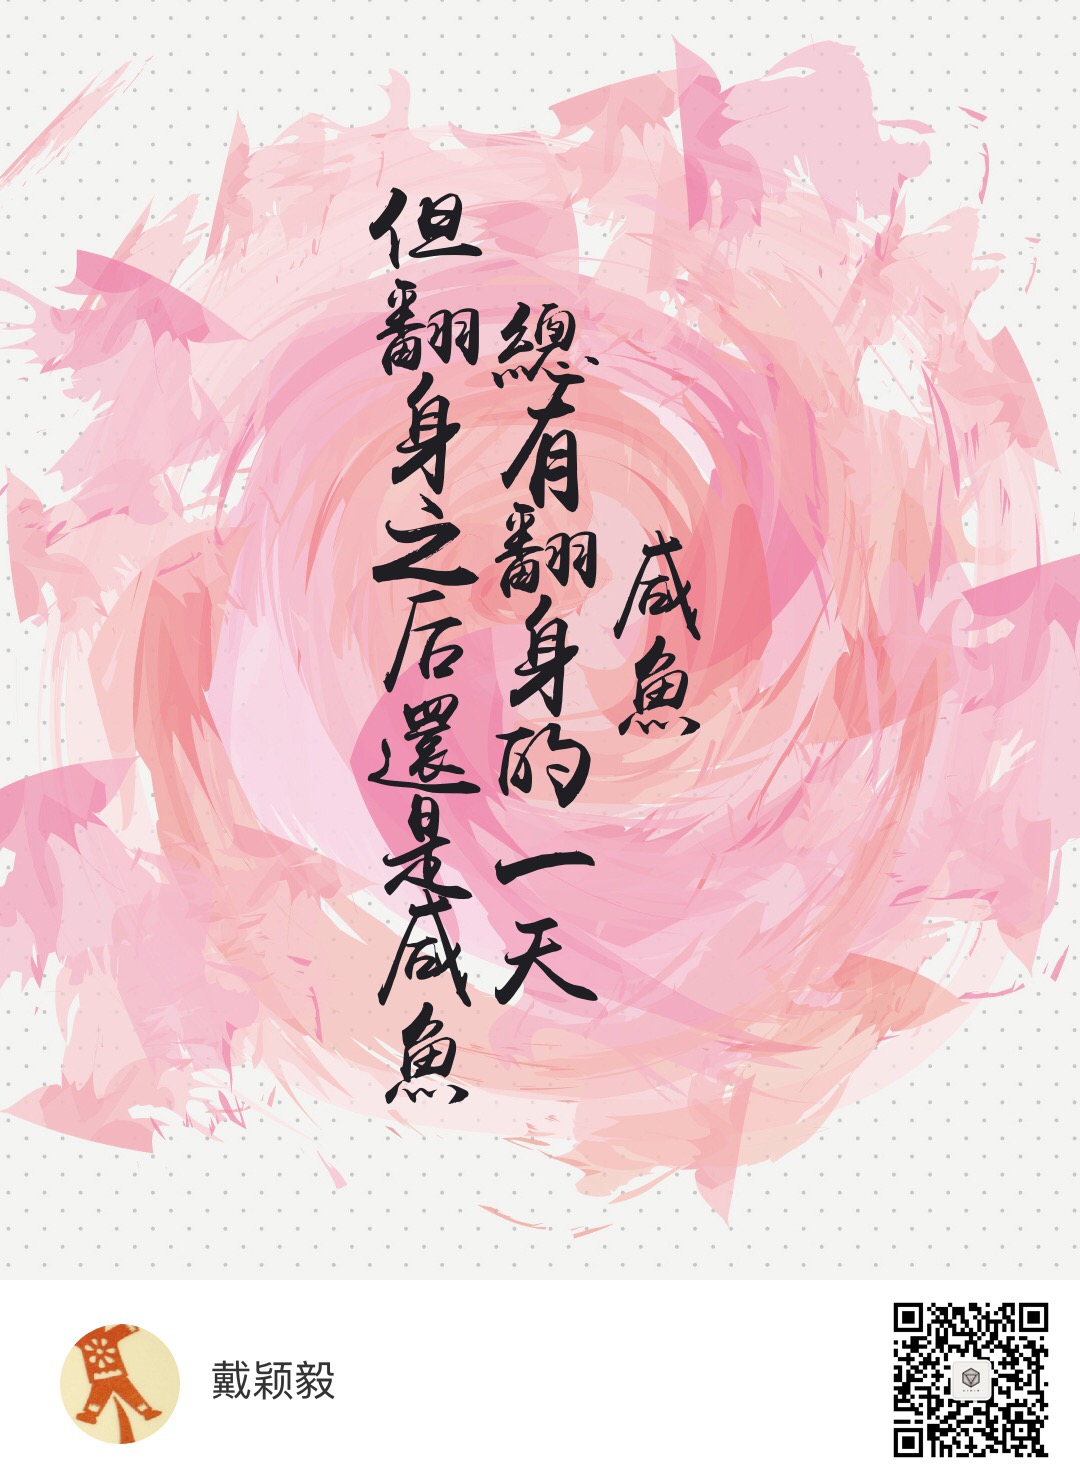 咸魚
總有翻身的一天
但翻身之后還是咸魚
戴颖毅